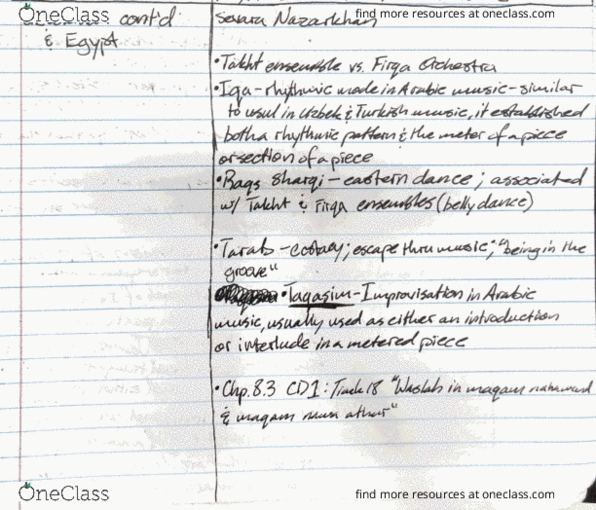 OneClass
find more resources at oneclass.com
cont'd
& Egypt
Sevara Nazarkhan
• Takht ensemble vs. Firqa Orchestra
• Iqa - rhythmic mode in Arabic music - similar
to usul in Uzbek & Turkish music, it established
both a rhythmic pattern & the meter of a piece
or section of a piece
• Raqs sharqi - eastern dance; associated
w/ Takht & Firqa ensembles (belly dance)
• Tarab - ecstacy; escape thru music; "being in the
groove"
• Taqasim - Improvisation in Arabic
music, usually used as either an introduction
or interlude in a metered piece
• Chp. 8.3 CD1: Track 18 "Waslah in maqam nahawand
& maqam
OneClass
find more resources at oneclass.com